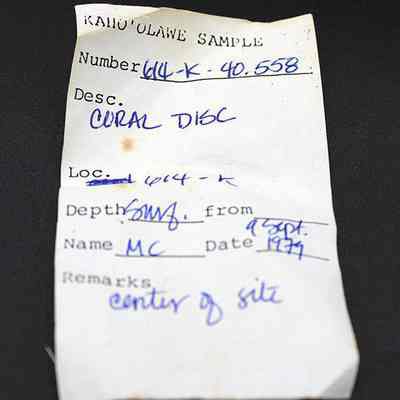 KAHO'OLAWE SAMPLE
Number 614-K-40.558
Desc.
CORAL DISC
Loc. 614-K
Depth Surf. from
Name MC Date 9 Sept. 1979
Remarks
center of site